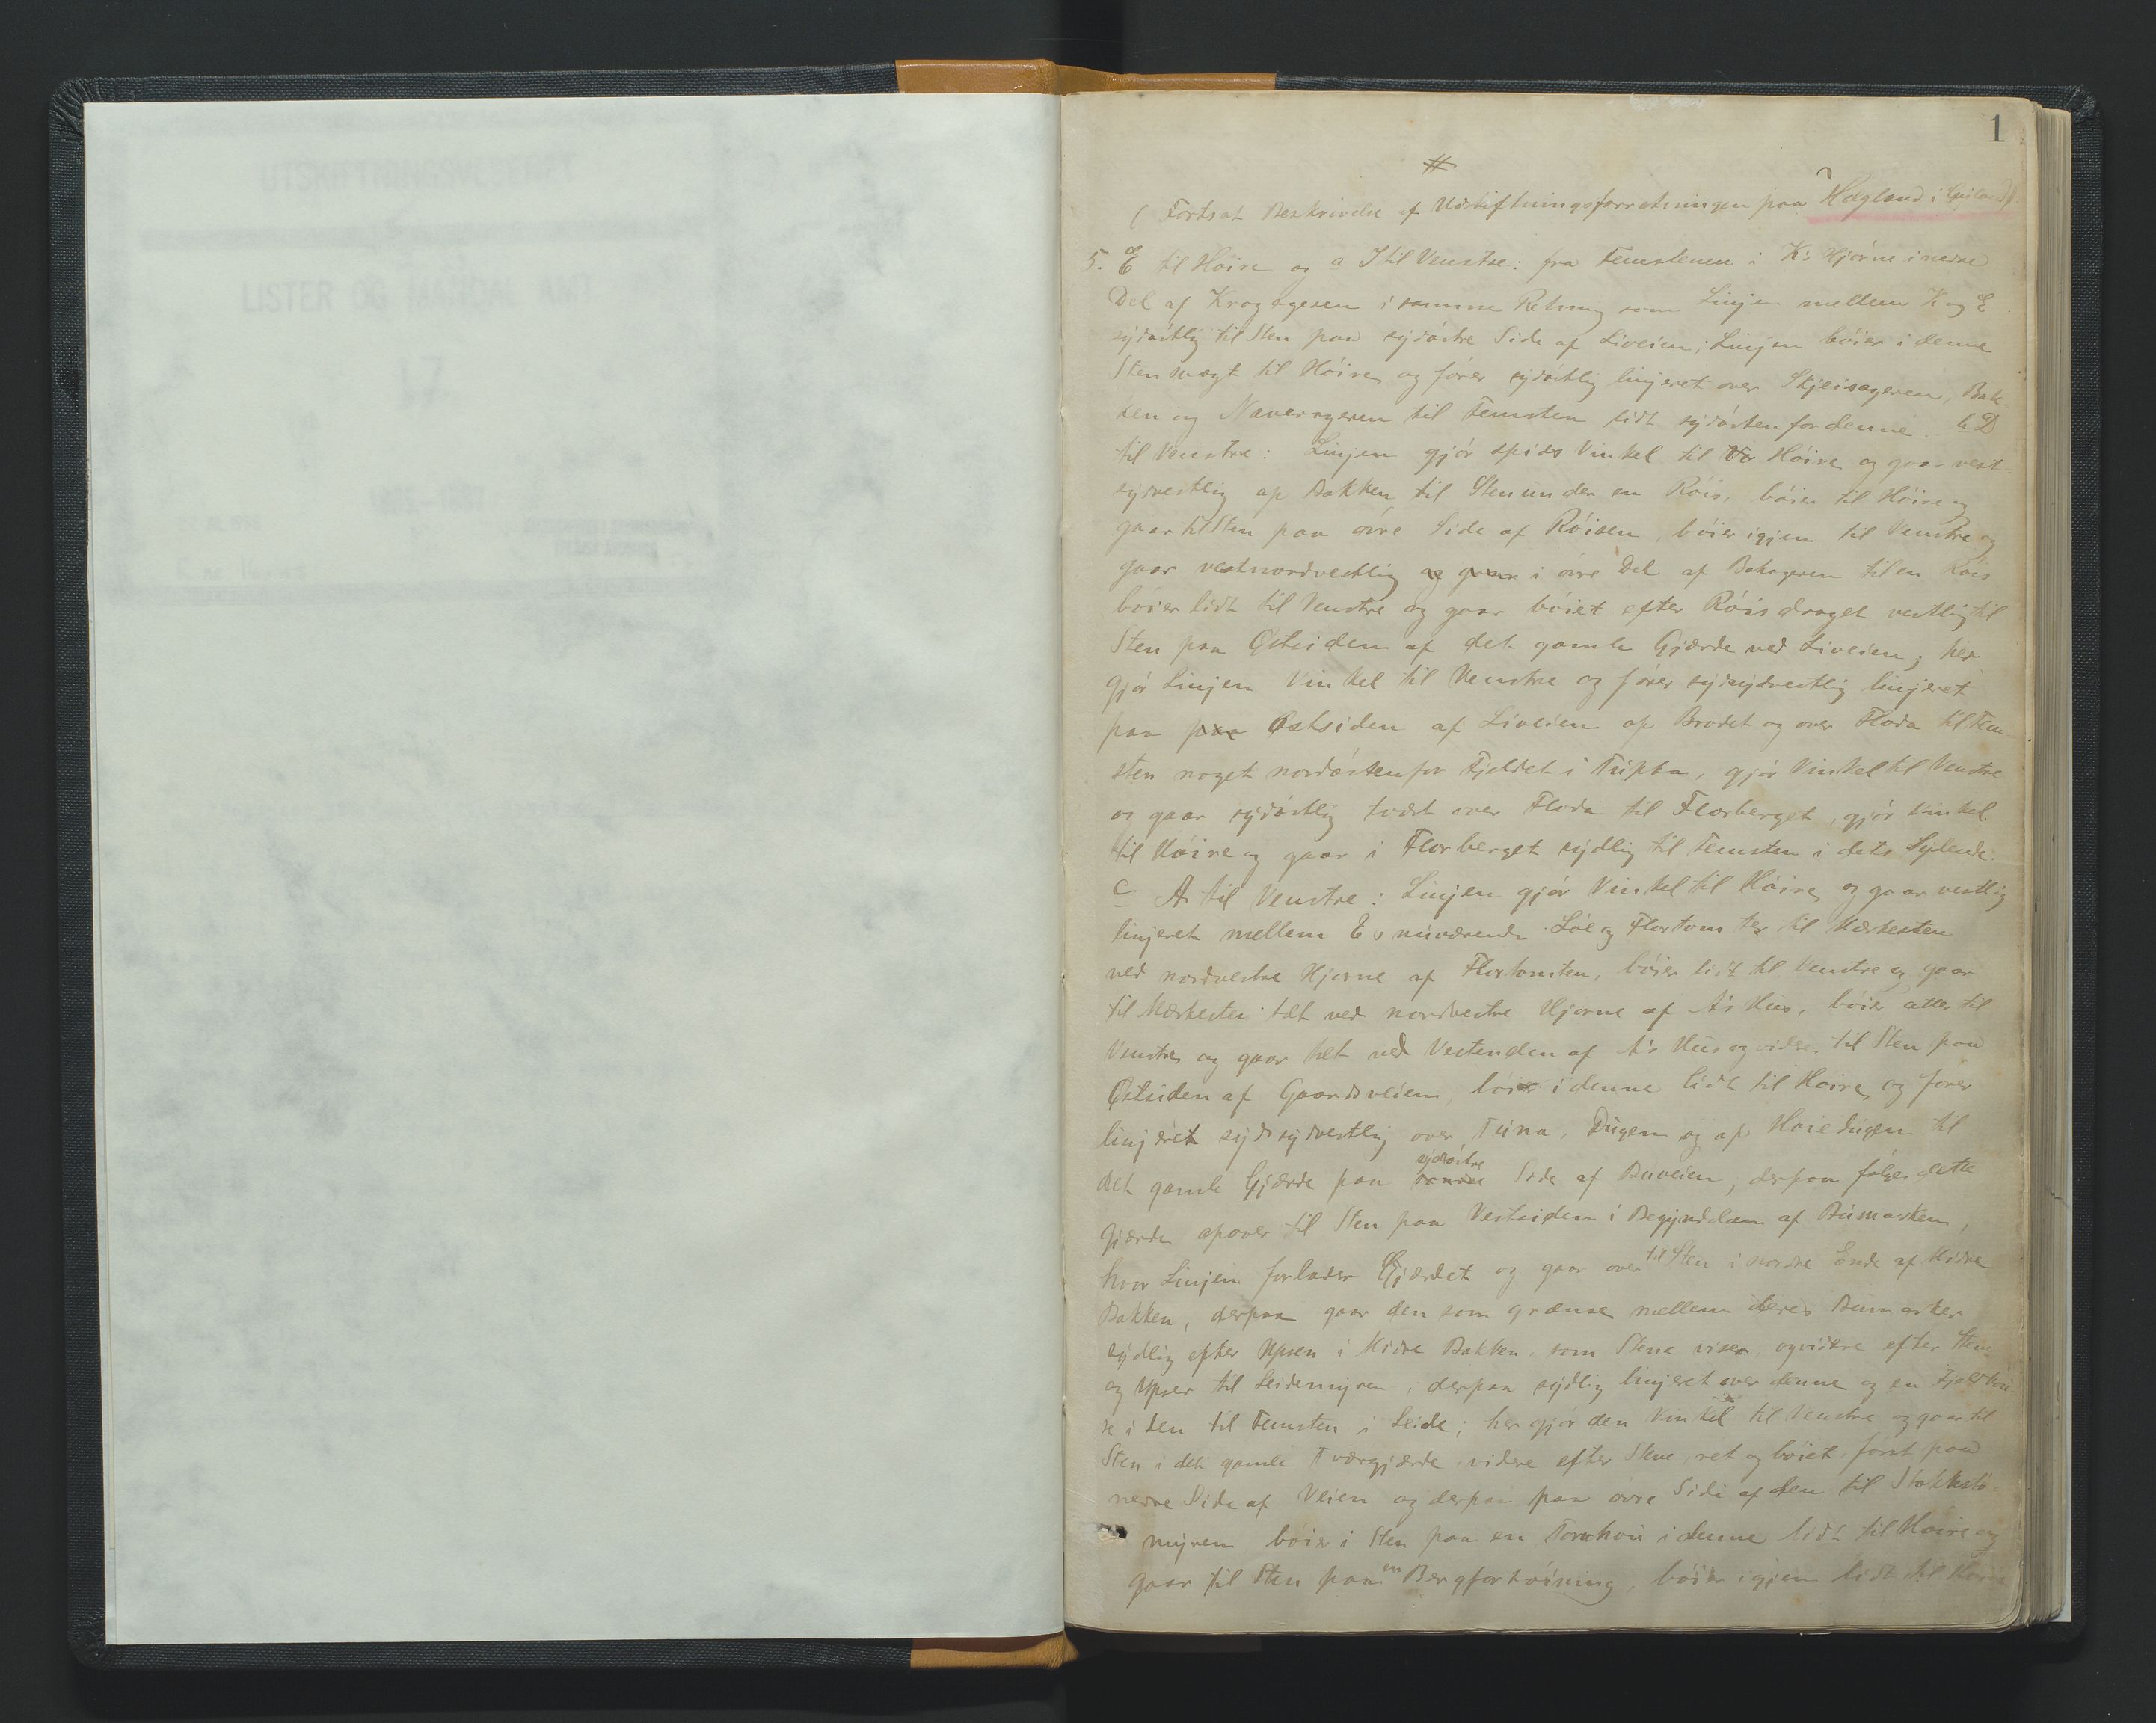 1
#
( Fortsat Beskrivelse af Udskiftningsforretningen paa Hægland i
5. E til Høire og a I til Venstre: fra Femstenen i K's Hjørne i nedre
Del af Kragageren i samme Retning som Linjen mellem K og E
sydøstlig til Sten paa sydøstre Side af Liveien; Linjen bøier i denne
Sten svagt til Høire og fører sydøstlig linjeret over Skjeisageren, Bak-
ken og Naverageren til Femsten lidt sydøstenfor denne. b D
til Venstre: Linjen gjør spids Vinkel til Høire og gaar vest-
sydvestlig ap Bakken til Sten under en Røis, bøier til Høire og
gaar til Sten paa øvre Side af Røisen, bøier igjen til Venstre og
gaar vestnordvestlig og gaar i øvre Del af Bakageren til en Røis
bøier lidt til Venstre og gaar bøiet efter Røisdraget vestlig til
Sten paa Østsiden af det gamle Gjærde ved Liveien; her
gjør Linjen Vinkel til Venstre og fører sydsydvestlig linjeret
paa paa Østsiden af Liveien ap Brodet og over Floda til Fem-
sten noget nordøstenfor Fjeldet i Tufta, gjør Vinkel til Venstre
og gaar sydøstlig tvært over Floda til Florberget, gjør Vinkel
til Høire og gaar i Florberget sydlig til Femsten i dets Sydende.
c A til Venstre: Linjen gjør Vinkel til Høire og gaar vestlig
linjeret mellem E's nuværende Løe og Flortomter til Mærkesten
ved nordvestre Hjørne af Flortomten, bøier lidt til Venstre og gaar
til Mærkesten tæt ved nordvestre Hjørne af A's Hus, bøier atter til
Venstre og gaar tet ved Vestenden af A's Hus og videre til Sten paa
Østsiden af Gaardsveien, bøier i denne lidt til Høire og fører
linjeret sydsydvestlig over Tuna, Dugen og ap Høiedugen til
det gamle Gjærde paa sydøstre Side af Buveien, derpaa følger dette
Gjærde apover til Sten paa Vestsiden i Begyndelsen af Bumarken,
hvor Linjen forlader Gjærdet og gaar over til Sten i nordre Ende af Midre
Bakken, derpaa gaar den som grændse mellem deres Bumarker
sydlig efter Upsen i Midre Bakken som Stene viser, og videre efter Stene
og Upser til Leidemyren, derpaa sydlig linjeret over denne og en
se i den til Femsten i Leide; her gjør den Vinkel til Venstre og gaar til
Sten i det gamle Tværgjærde, videre efter Stene, ret og bøiet, først paa
nedre Side af Veien og derpaa paa øvre Side af den til Stokkstø-
myren bøier i Sten paa en i denne lidt til Høire og
gaar til Sten paa en Bergforhøining, bøier igjen lidt til Høire